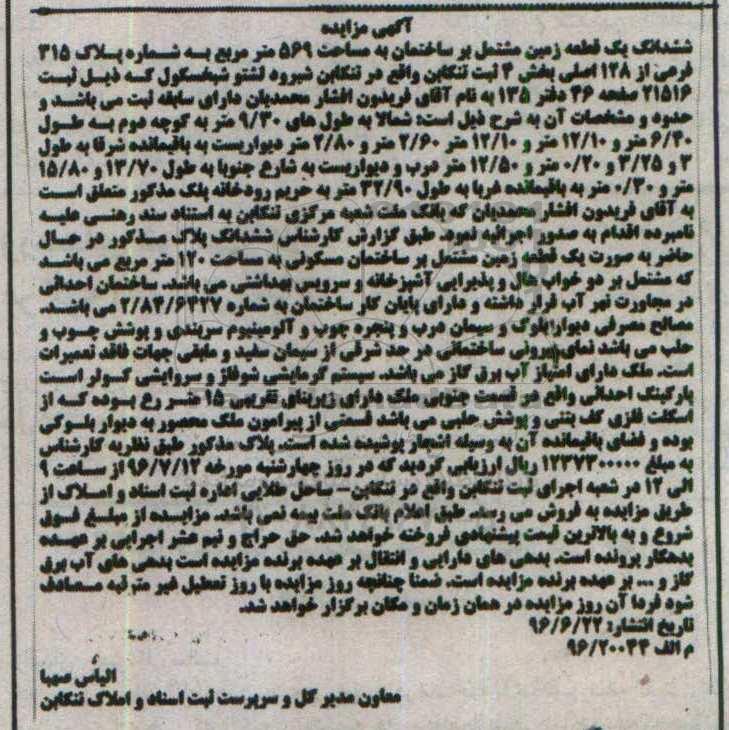 آگهی مزایده
ششدانگ یک قطعه زمین مشتمل بر ساختمان به مساحت ۵۶۹ متر مربع به شماره پلاک ۳۱۵
فرعی از ۱۲۸ اصلی بخش ۴ ثبت تنکابن واقع در تنکابن شیرود لشتو شیخسکول که ذیل ثبت
۲۱۵۱۶ صفحه ۴۶ دفتر ۱۳۵ به نام آقای فریدون افشار محمدیان دارای سابقه ثبت می باشد و
حدود و مشخصات آن به شرح ذیل است: شمالا به طول های ۹/۳۰ متر به کوچه دوم به طول
۶/۴۰ متر و ۱۰/۱۲ متر و ۱۰/۱۲ متر ۲/۶۰ متر و ۲/۸۰ متر دیواریست به باقیمانده شرقا به طول
۳ و ۳/۲۵ و ۰/۲۰ متر و ۱۲/۵۰ متر درب و دیواریست به شارع جنوبا به طول ۱۳/۷۰ و ۱۵/۸۰
متر و ۰/۳۰ متر به باقیمانده غربا به طول ۳۲/۹۰ متر به حریم رودخانه پلک مذکور متعلق است
به آقای فریدون افشار محمدیان که بانک ملت شعبه مرکزی تنکابن به استناد سند رهنی علیه
نامبرده اقدام به صدور اجرائیه نمود. طبق گزارش کارشناس ششدانگ پلاک مذکور در حال
حاضر به صورت یک قطعه زمین مشتمل بر ساختمان مسکونی به مساحت ۱۲۰ متر مربع می باشد
که مشتمل بر دو خواب هال و پذیرایی آشپزخانه و سرویس بهداشتی می باشد. ساختمان احداثی
در مجاورت نهر آب قرار داشته و دارای پایان کار ساختمان به شماره ۲/۸۴/۶۴۲۷ می باشد.
مصالح مصرفی دیوار بلوک و سیمان درب و پنجره چوب و آلومینیوم سربندی و پوشش چوب و
حلب می باشد نمای بیرونی ساختمانی در حد شرقی از سیمان سفید و مابقی جهات فاقد تعمیرات
است. ملک دارای امتیاز آب برق گاز می باشد. سیستم گرمایشی شوفاژ و سروایشی کولر است
پارکینگ احداثی واقع در قسمت جنوبی ملک دارای زیربنای تقریبی ۱۵ متر رع بوده که از
اسکلت فلزی کف بتنی و پوشش حلبی می باشد قسمتی از پیرامون ملک محصور به دیوار بلوکی
بوده و فضای باقیمانده آن به وسیله اشجار پوشیده شده است. پلاک مذکور طبق نظریه کارشناس
به مبلغ ۱۲۳۷۳۰۰۰۰۰ ریال ارزیابی گردید که در روز چهارشنبه مورخه ۹۶/۷/۱۲ از ساعت ۹
الی ۱۲ در شعبه اجرای ثبت تنکابن واقع در تنکابن– ساحل طلایی اداره ثبت اسناد و املاک از
طریق مزایده به فروش می رسد. طبق اعلام بانک ملت بیمه نمی باشد. مزایده از مبلغ فوق
شروع و به بالاترین قیمت پیشنهادی فروخته خواهد شد. حق حراج و نیم عشر اجرایی بر عهده
بدهکار پرونده است. بدهی های دارایی و انتقال بر عهده برنده مزایده است بدهی های آب برق
گاز و ... بر عهده برنده مزایده است. ضمنا چنانچه روز مزایده با روز تعطیل غیر مترقبه مصادف
شود فردا آن روز مزایده در همان زمان و مکان برگزار خواهد شد.
تاریخ انتشار: ۹۶/۶/۲۲
م الف ۹۶/۲۰۰۴۴
الیاس صهبا
معاون مدیر کل و سرپرست ثبت اسناد و املاک تنکابن